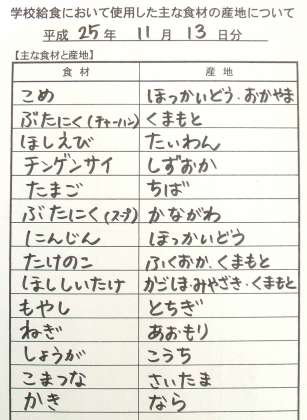 学校給食において使用した主な食材の産地について
平成 25 年 11 月 13 日分
【主な食材と産地】
食材 産地
こめ ほっかいどう・おかやま
ぶたにく(チャーハン) くまもと
ほしえび たいわん
チンゲンサイ しずおか
たまご ちば
ぶたにく(スープ) かながわ
にんじん ほっかいどう
たけのこ ふくおか、くまもと
ほししいたけ かごしま・みやざき・くまもと
もやし とちぎ
ねぎ あおもり
しょうが こうち
こまつな さいたま
かき なら